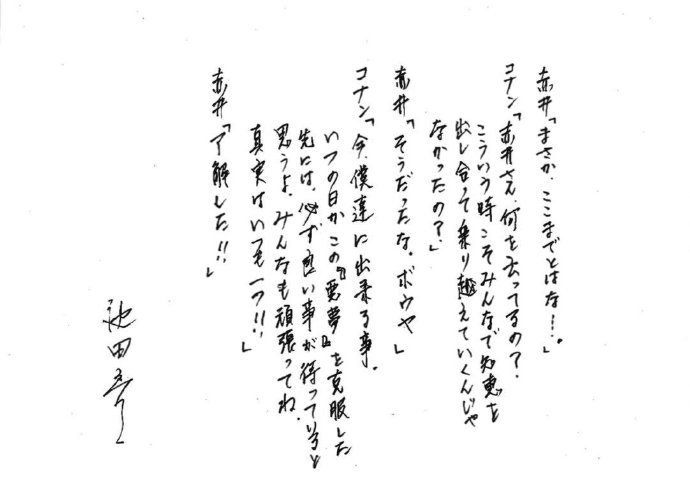 赤井「まさか、ここまでとはな…。
コナン「赤井さん、何を云ってるの?
こういう時こそみんなで知恵を
出し合って乗り越えていくんじゃ
なかったの?」
赤井「そうだったな。ボウヤ」
コナン「今、僕達に出来る事。
いつの日かこの『悪夢』を克服した
先には、必ず良い事が待っていると
思うよ。みんなも頑張ってね。
真実はいつも一つ!!」
赤井「了解した!!」
池田秀一